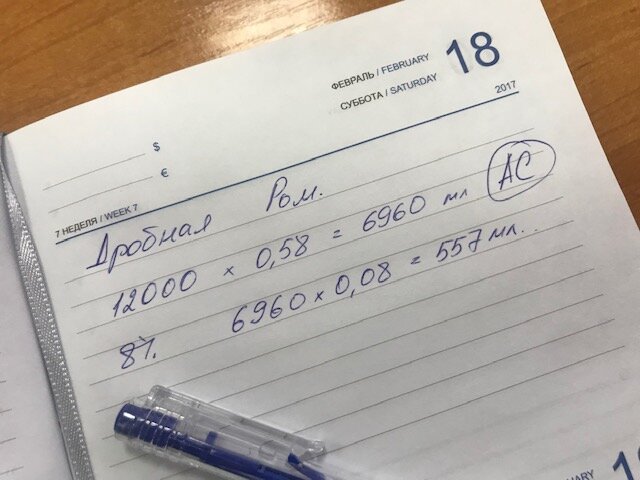 ФЕВРАЛЬ / FEBRUARY 18
СУББОТА / SATURDAY
2017
$
€
7 НЕДЕЛЯ / WEEK 7
Дробная Ром.
12000 x 0,58 = 6960 мл АС
8%. 6960 x 0,08 = 557 мл.